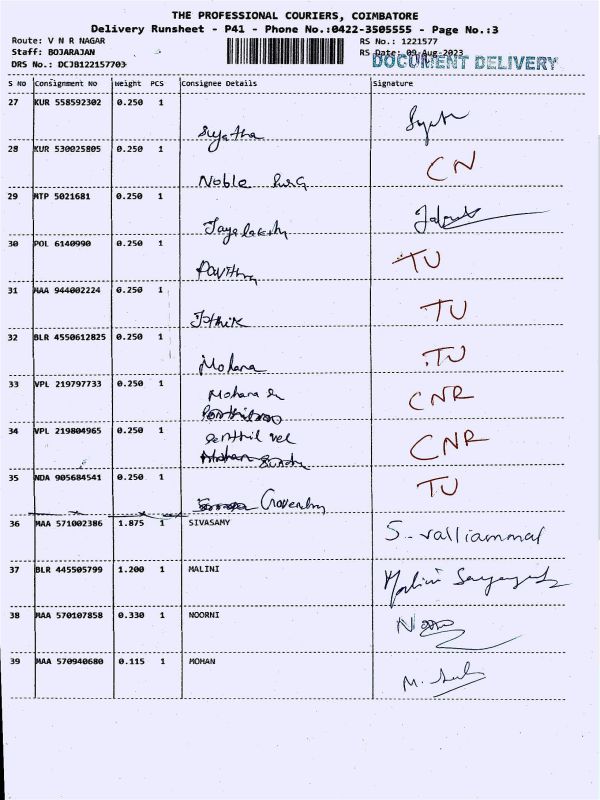 THE PROFESSIONAL COURIERS, COIMBATORE
Delivery Runsheet - P41 - Phone No.:0422-3505555 - Page No.:3
Route: V N R NAGAR RS No.: 1221577
Staff: BOJARAJAN RS Date: 09-Aug-2023
DRS No.: DCJB122157703 DOCUMENT DELIVERY
S No Consignment No Weight PCS Consignee Details Signature
27 KUR 558592302 0.250 1
Sujatha
28 KUR 530025805 0.250 1 CN
Noble
29 MTP 5021681 0.250 1
Jayalakshmi
30 POL 6140990 0.250 1 TU
Pavithra
31 MAA 944002224 0.250 1 TU
Jothik
32 BLR 4550612825 0.250 1 TU
Mohana
33 VPL 219797733 0.250 1 CNR
Mohana
34 VPL 219804965 0.250 1 CNR
Senthil vel
35 NDA 905684541 0.250 1 TU
36 MAA 571002386 1.875 1 SIVASAMY S. valliammal
37 BLR 445505799 1.200 1 MALINI Malini
38 MAA 570107858 0.330 1 NOORNI
39 MAA 570940680 0.115 1 MOHAN